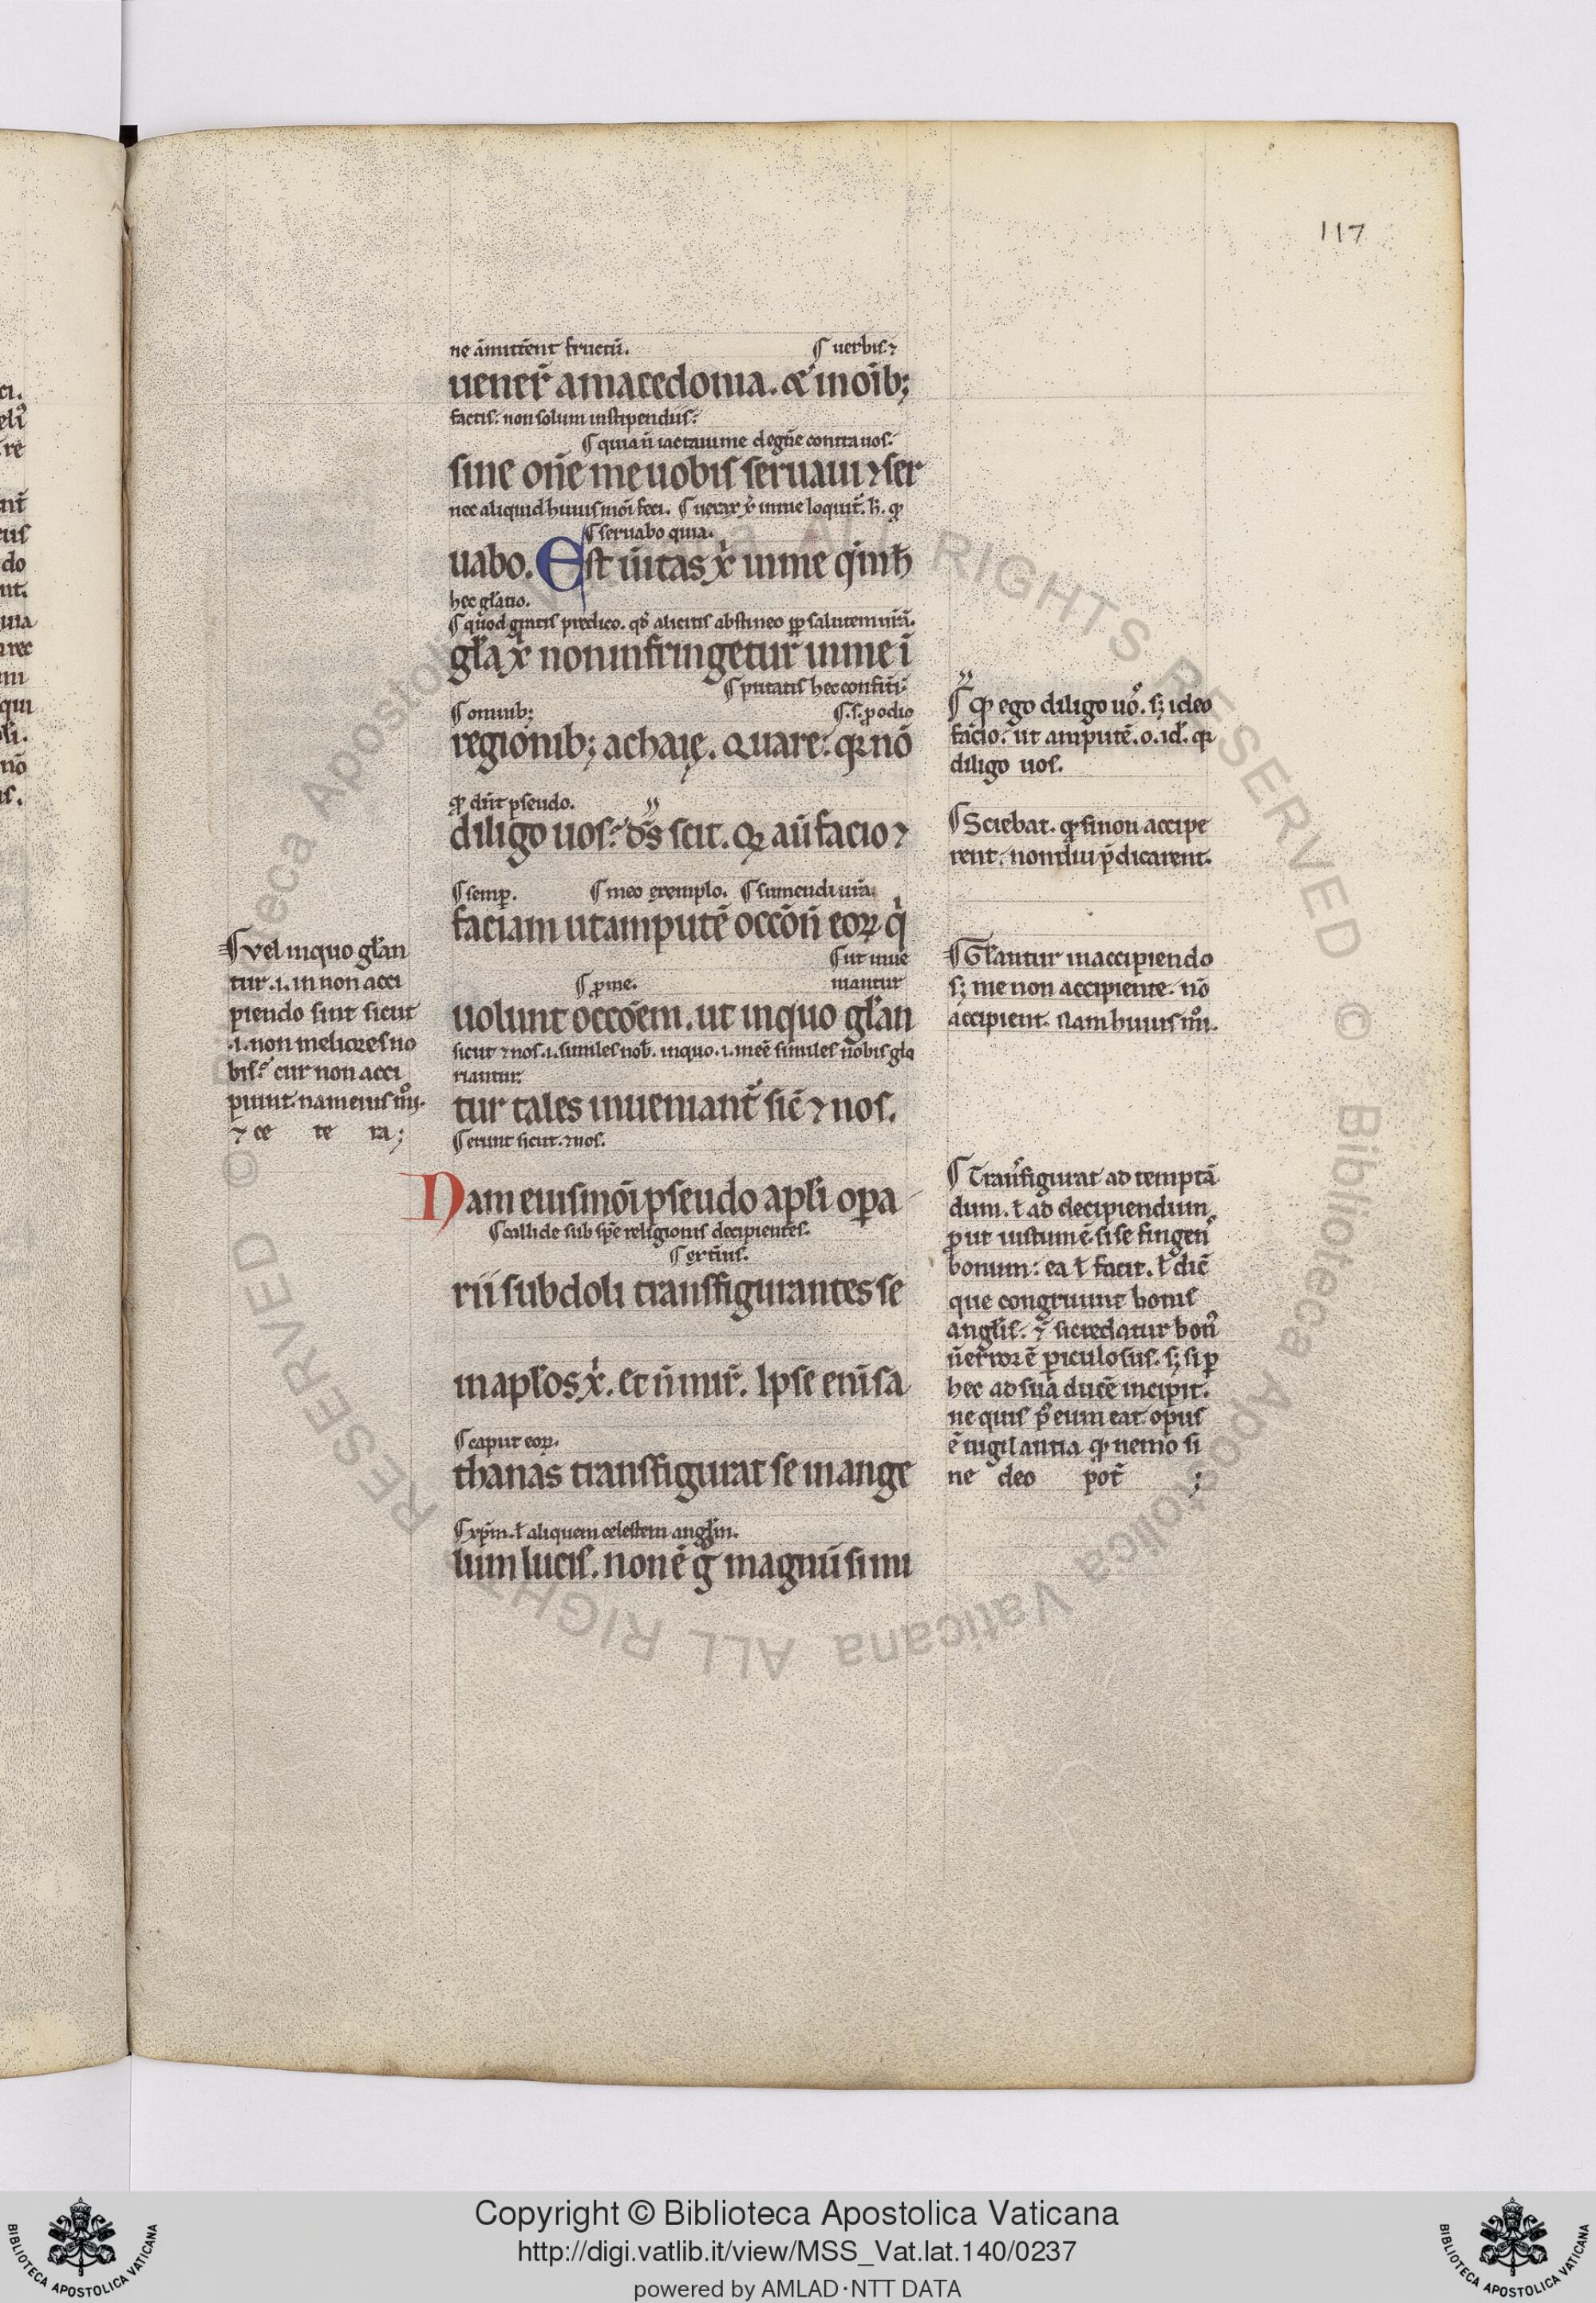 117
ne āmittēnt fructū. ¶ uerbis ⁊
uener̄ a macedonia. & in oīb;
factis. non solum in stipendiis.
¶ quia n̄ iactaui me degn̄e contra uos.
sine on̄e me uobis seruaui ⁊ ser
nec aliquid huius mōi feci. ¶ uerax x̄ in me loquit̄. h̄. qͥ
¶ seruabo quia.
uabo. Est ūitas x̄ in me qm̄ h̄
hec gl̄atio.
¶ quod gratis predico. qd̄ a licitis abstineo ꝓpt̄ salutem ur̄ā.
gl̄a x̄ non infringetur in me ī
¶ putatis hec confit̄i
¶ omnib; ¶ .s. ꝓ odio
regionib; achaię. Quare: qꝛ nō
qͥ dn̄t pseudo.
diligo uos? d̄s scit. Qꝛ aū facio ⁊
¶ semꝑ. ¶ meo exemplo. ¶ sumendi ur̄a.
faciam ut amputē occōn̄ eoꝝ qͥ
¶ ut inue
¶ ꝓ me. niantur
uolunt occōem. ut in quo gl̄an
sicut ⁊ nos .i. similes nob̄. in quo .i. meē similes nobis glo
riantur.
tur tales inueniant̄ sic̄ ⁊ nos.
¶ erunt sicut. ⁊ nos.
Nam eiusmōi pseudo apl̄i oꝑa
¶ callide sub sp̄e religionis decipientes.
¶ exteriꝰ.
rii subdoli transfigurantes se
in apl̄os x̄. Et n̄ mir̄. Ipse eni sa
¶ caput eoꝝ.
thanas transfigurat se in ange
¶ xp̄m. ł aliquem celestem angl̄m.
lum lucis. non ē g̊ magnū si mi
¶ vel in quo gl̄an
tur .i. in non acci
piendo sint sicut
.i. non meliores no
bis? cur non acci
piunt. nam eius mōi.
⁊ ce te ra;
¶ qͥ ego diligo uos. sꝫ ideo
facio. ut amputē .o. id̄. qꝛ
diligo uos.
¶ Sciebat. qͥ si non accipe
rent. non diu p̄dicarent.
¶ Gl̄antur in accipiendo
sꝫ me non accipiente. nō
accipient. Nam huius mōi.
¶ Transfigurat ad temptā
dum. ł ad decipiendum.
ꝓut iustum ē. si se fingens
bonum: ea ł facit. ł dic̄
que congruunt bonis
angl̄is. ⁊ si credatur bonꝰ
n̄ error ē periculosus. sꝫ si ꝑ
hec ad sua ducē incipit.
ne quis p̄ eum eat. opus
ē uigilantia qͥ nemo si
ne deo pot̄ ;
Copyright © Biblioteca Apostolica Vaticana
http://digi.vatlib.it/view/MSS_Vat.lat.140/0237
powered by AMLAD·NTT DATA
BIBLIOTECA APOSTOLICA VATICANA
BIBLIOTECA APOSTOLICA VATICANA
© Biblioteca Apostolica Vaticana ALL RIGHTS RESERVED
© Biblioteca Apostolica Vaticana ALL RIGHTS RESERVED